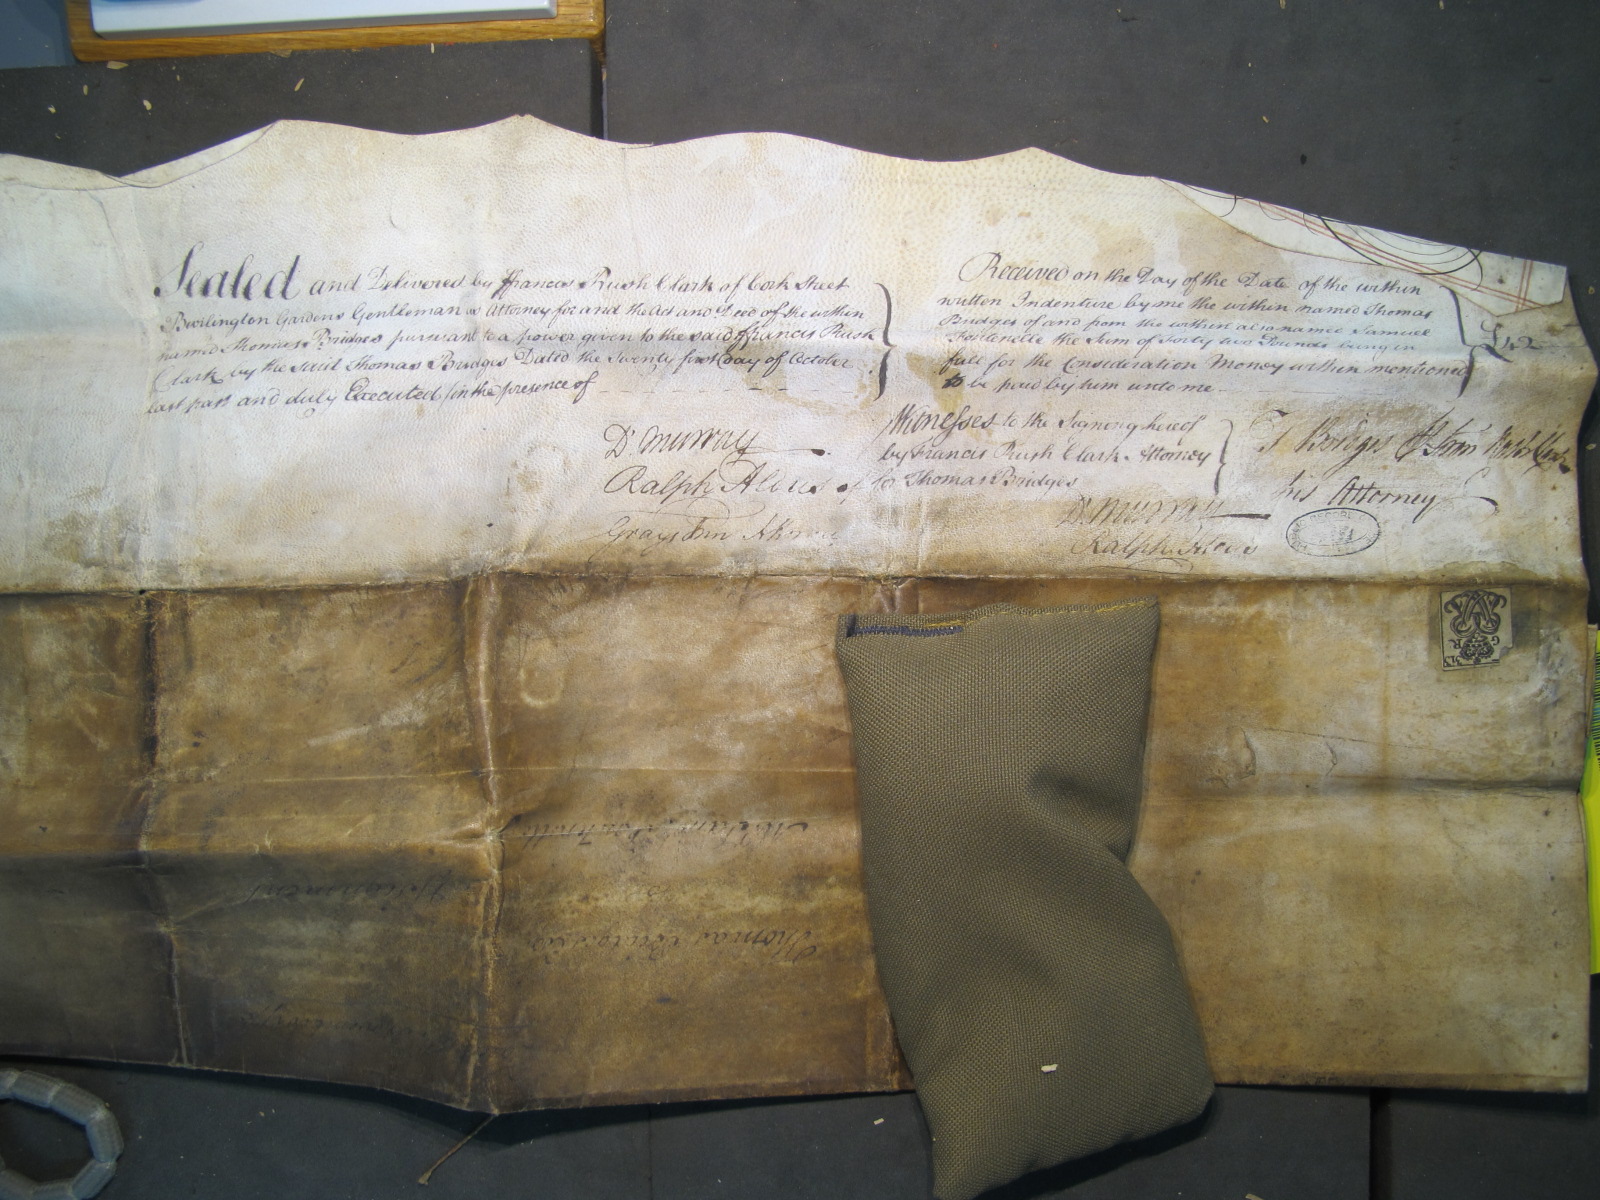 Sealed and Delivered by Francis Rush Clark of Cork Street
Burlington Gardens Gentleman as Attorney for and the Act and Deed of the within
named Thomas Bridges pursuant to a power given to the said Francis Rush
Clark by the said Thomas Bridges Dated the Twenty first day of October
last past and duly Executed in the presence of
D. Murray
Ralph
Received on the Day of the Date of the within
written Indenture by me the within named Thomas
Bridges of and from the within also named Samuel
Fontenelle the Sum of Forty two Pounds being in
full for the Consideration Money within mentioned
to be paid by him unto me
£42
Witnesses to the Signing hereof
by Francis Rush Clark Attorney
for Thomas Bridges
D. Murray
Ralph
T Bridges
his Attorney
G R
Assignment
Thomas